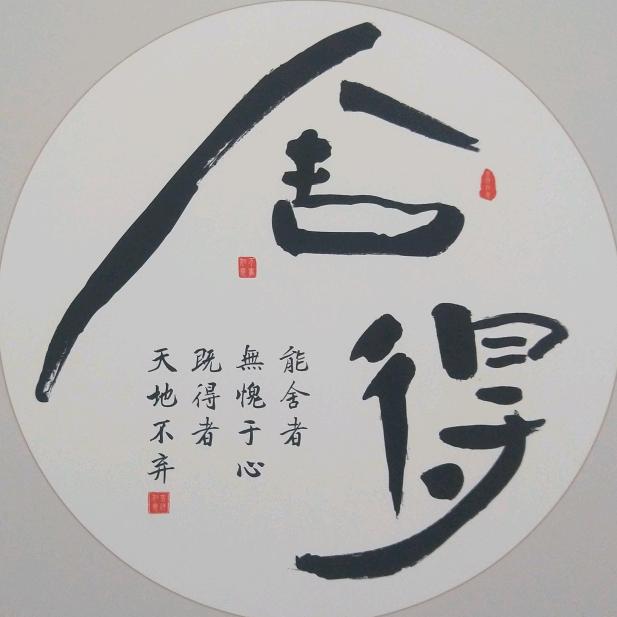 舍得
能舍者
無愧于心
既得者
天地不弃